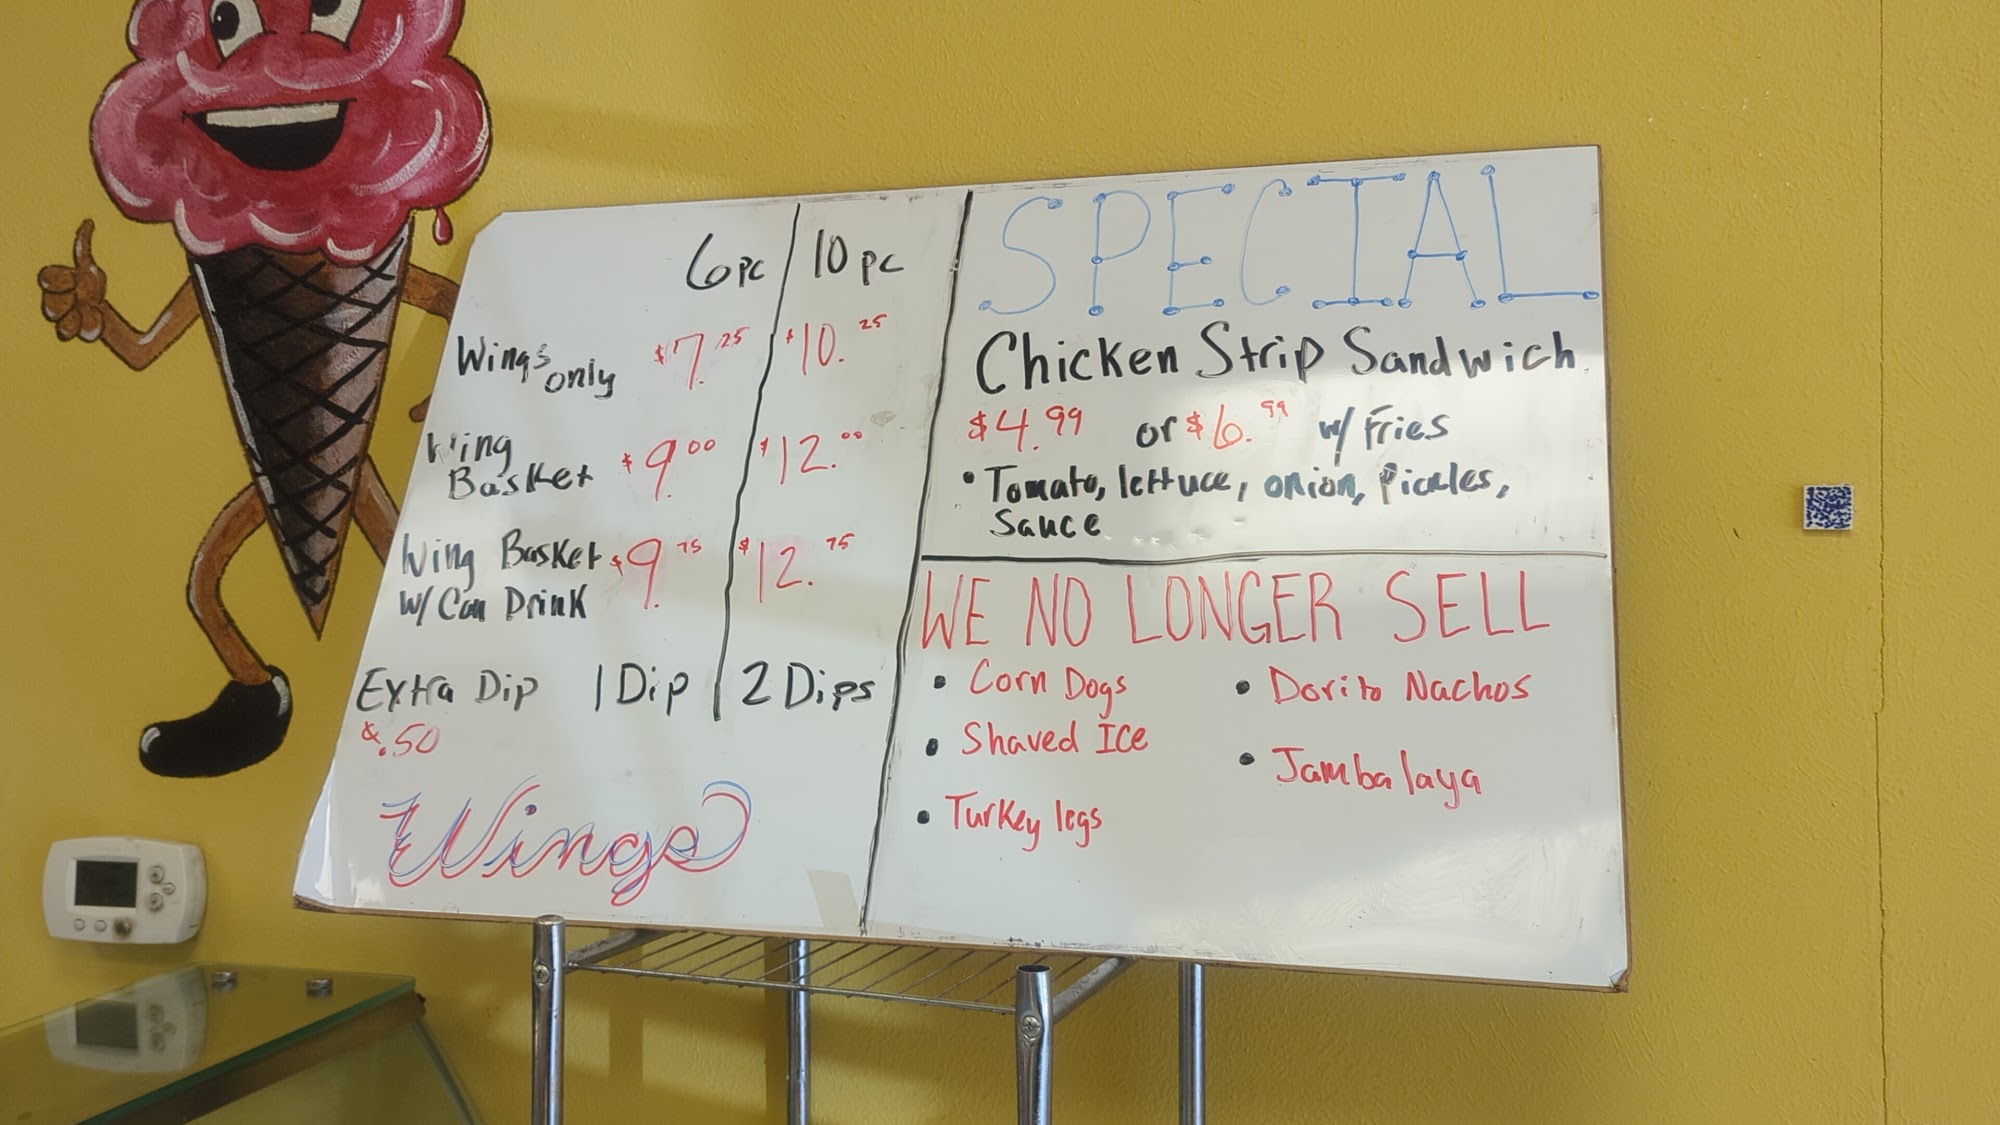 6pc 10pc
Wings only $7.25 $10.25
Wing
Basket $9.00 $12.00
Wing Basket $9.75 $12.75
w/ Can Drink
Extra Dip 1 Dip 2 Dips
$.50
Wings
SPECIAL
Chicken Strip Sandwich
$4.99 or $6.99 w/ Fries
• Tomato, lettuce, onion, Pickles,
Sauce
WE NO LONGER SELL
• Corn Dogs
• Shaved Ice
• Turkey legs
• Dorito Nachos
• Jambalaya